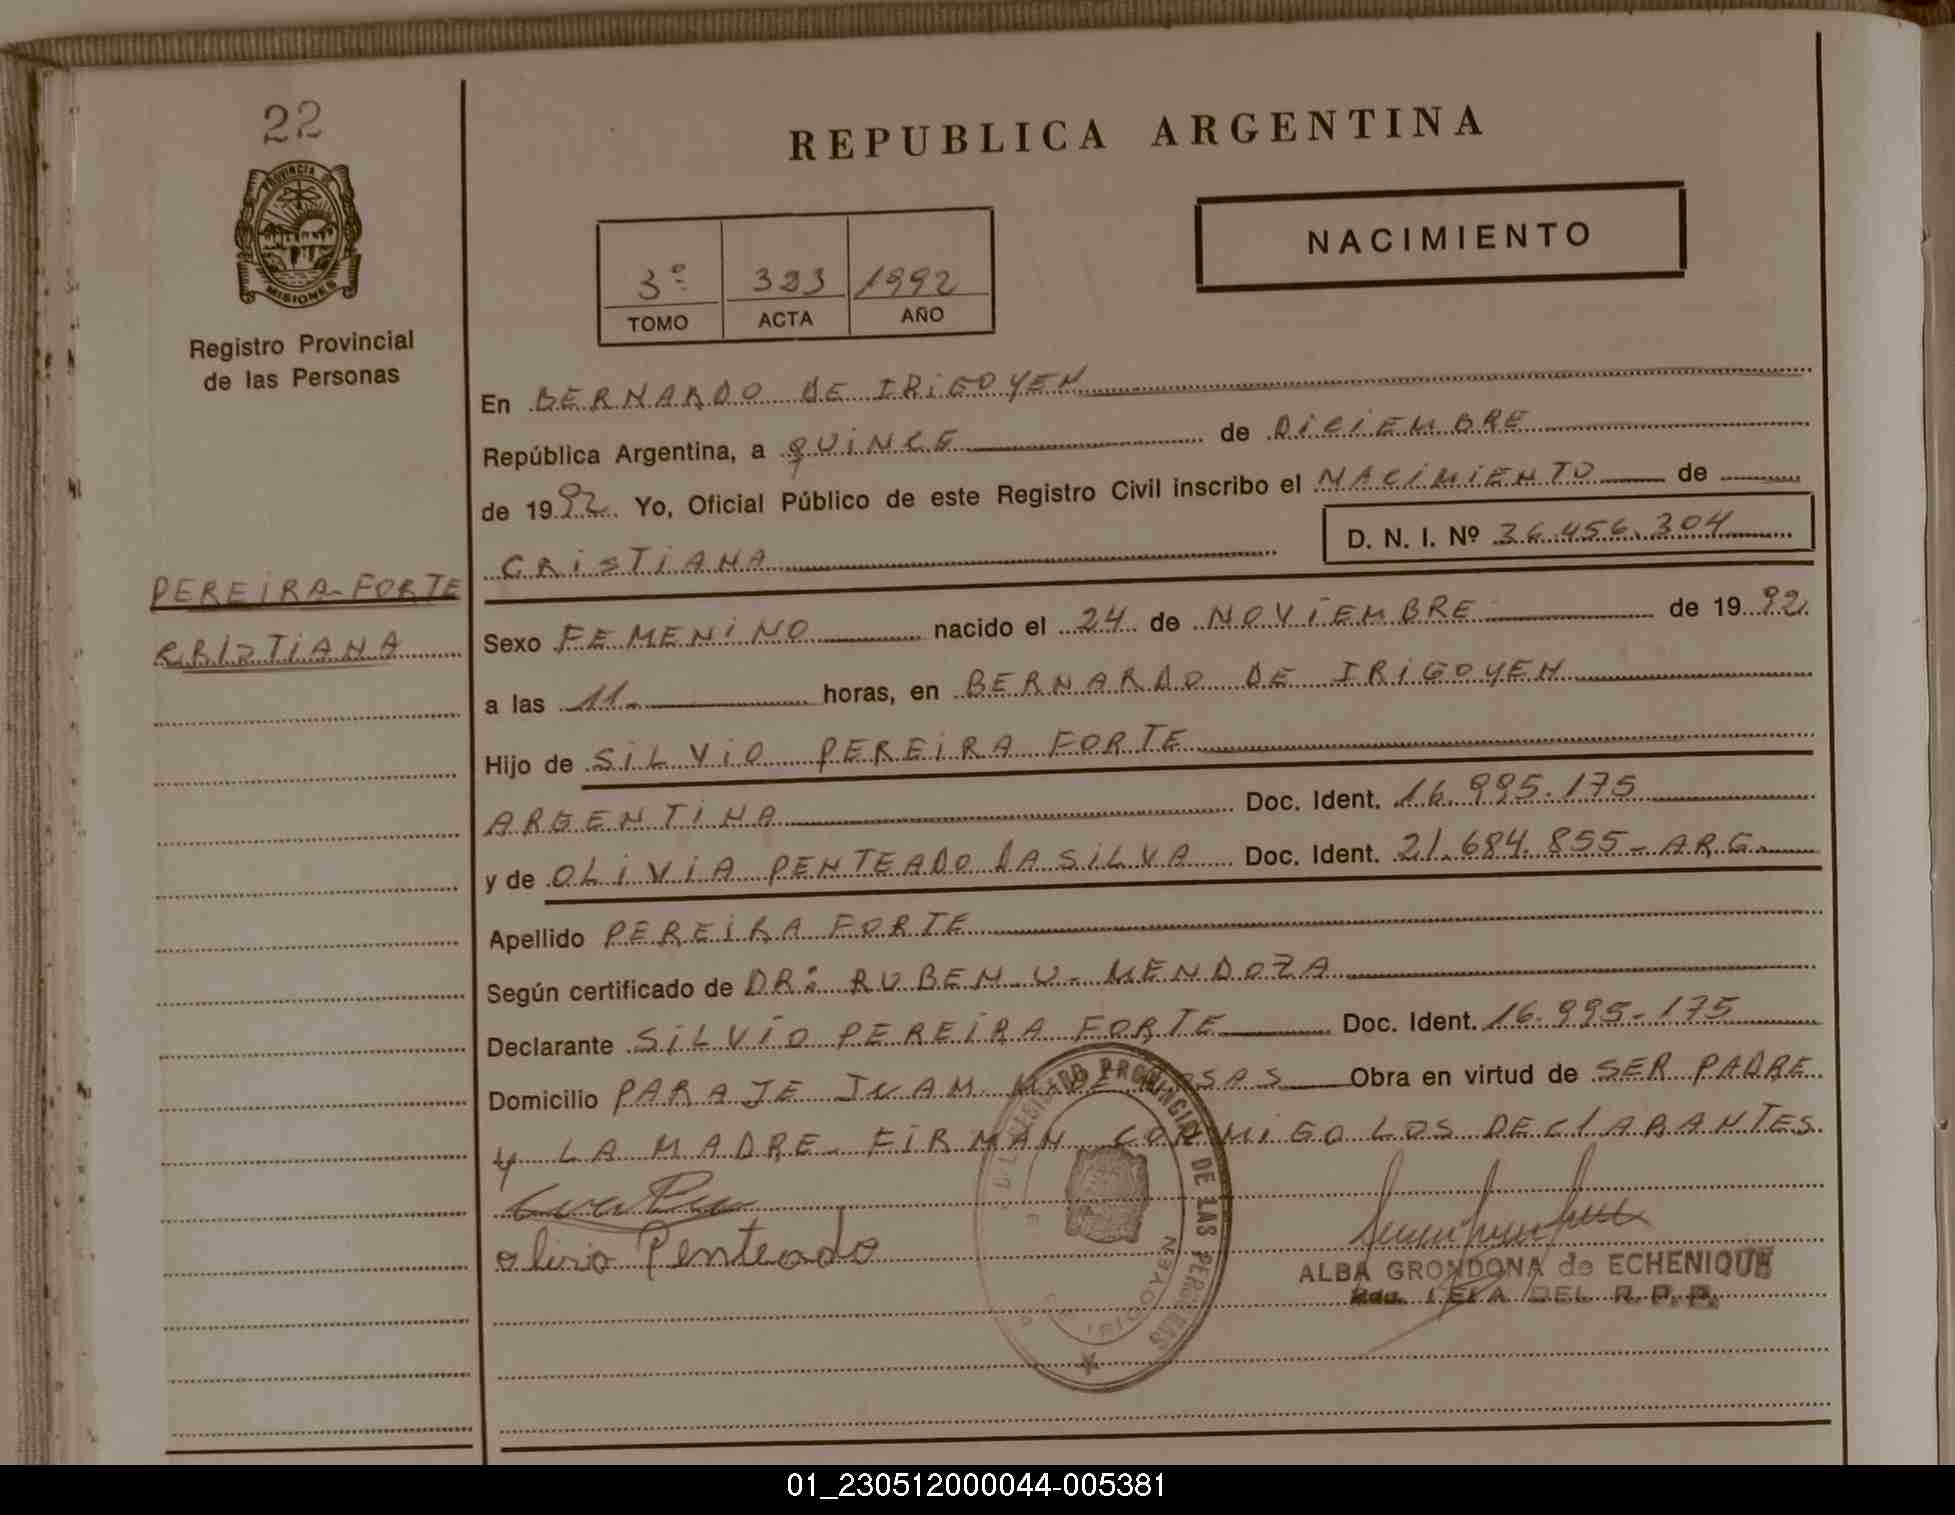 22
PROVINCIA DE
MISIONES
Registro Provincial
de las Personas
PEREIRA-FORTE
CRISTIANA
REPUBLICA ARGENTINA
NACIMIENTO
3º 323 1992
TOMO ACTA AÑO
En BERNARDO DE IRIGOYEN
República Argentina, a QUINCE de DICIEMBRE
de 1992. Yo, Oficial Público de este Registro Civil inscribo el NACIMIENTO de
CRISTIANA D. N. I. Nº 36.456.304
Sexo FEMENINO nacido el 24 de NOVIEMBRE de 1992
a las 11- horas, en BERNARDO DE IRIGOYEN
Hijo de SILVIO PEREIRA FORTE
ARGENTINA Doc. Ident. 16.995.175
y de OLIVIA PENTEADO DA SILVA Doc. Ident. 21.684.855-ARG.
Apellido PEREIRA FORTE
Según certificado de DR: RUBEN U. MENDOZA
Declarante SILVIO PEREIRA FORTE Doc. Ident. 16.995-175
Domicilio PARAJE JUAN M. DE ROSAS Obra en virtud de SER PADRE
Y LA MADRE- FIRMAN CONMIGO LOS DECLARANTES
olivio Penteado
PROVINCIAL DE LAS PERSONAS
IRIGOYEN
ALBA GRONDONA de ECHENIQUE
JEFA DEL R.P.P.
01_230512000044-005381